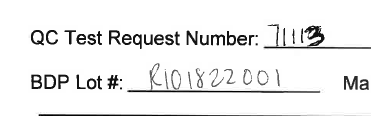 QC Test Request Number: 71113
BDP Lot #: R101822001 Ma